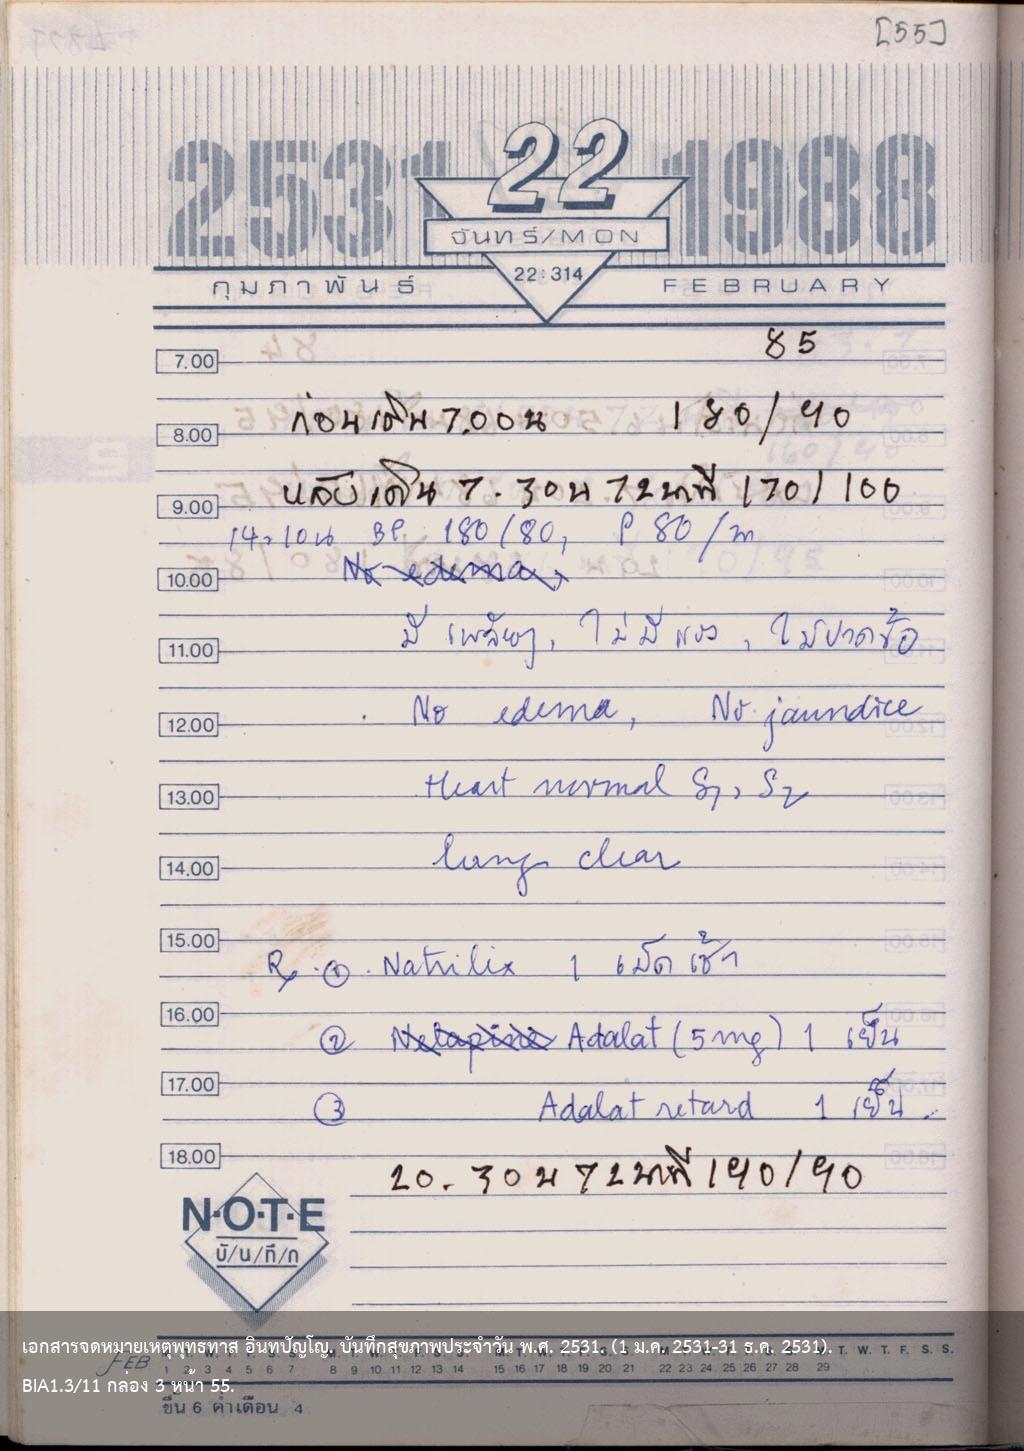 [55]
2531 22 1988
จันทร์/MON
22:314
กุมภาพันธ์ FEBRUARY
85
7.00
ก่อนเดิน 7.00น 180/90
8.00
หลังเดิน 7.30น 72 นาที 170/100
9.00
14.10น BP. 180/80, P 80/m
No edema,
10.00
มี เพลีย, ไม่มีแรง,
11.00
No edema, No jaundice
12.00
Heart normal S1, S2
13.00
lung clear
14.00
15.00
Rx ① Natrilix 1 เม็ด เช้า
16.00
② Adalat (5mg) 1 เย็น
17.00
③ Adalat retard 1 เย็น.
18.00
20.30น 72 นาที 190/90
N·O·T·E
บั/น/ทึ/ก
เอกสารจดหมายเหตุพุทธทาส อินทปัญโญ. บันทึกสุขภาพประจำวัน พ.ศ. 2531. (1 ม.ค. 2531-31 ธ.ค. 2531).
FEB M. T. W. T. F. S. S. M. T. W. T. F. S. S. M. T. W. T. F. S. S. M. T. W. T. F. S. S. M. T. W. T. F. S. S.
1 2 3 4 5 6 7 8 9 10 11 12 13 14 15 16 17 18 19 20 21 22 23 24 25 26 27 28 29
BIA1.3/11 กล่อง 3 หน้า 55.
ขึ้น 6 ค่ำเดือน 4